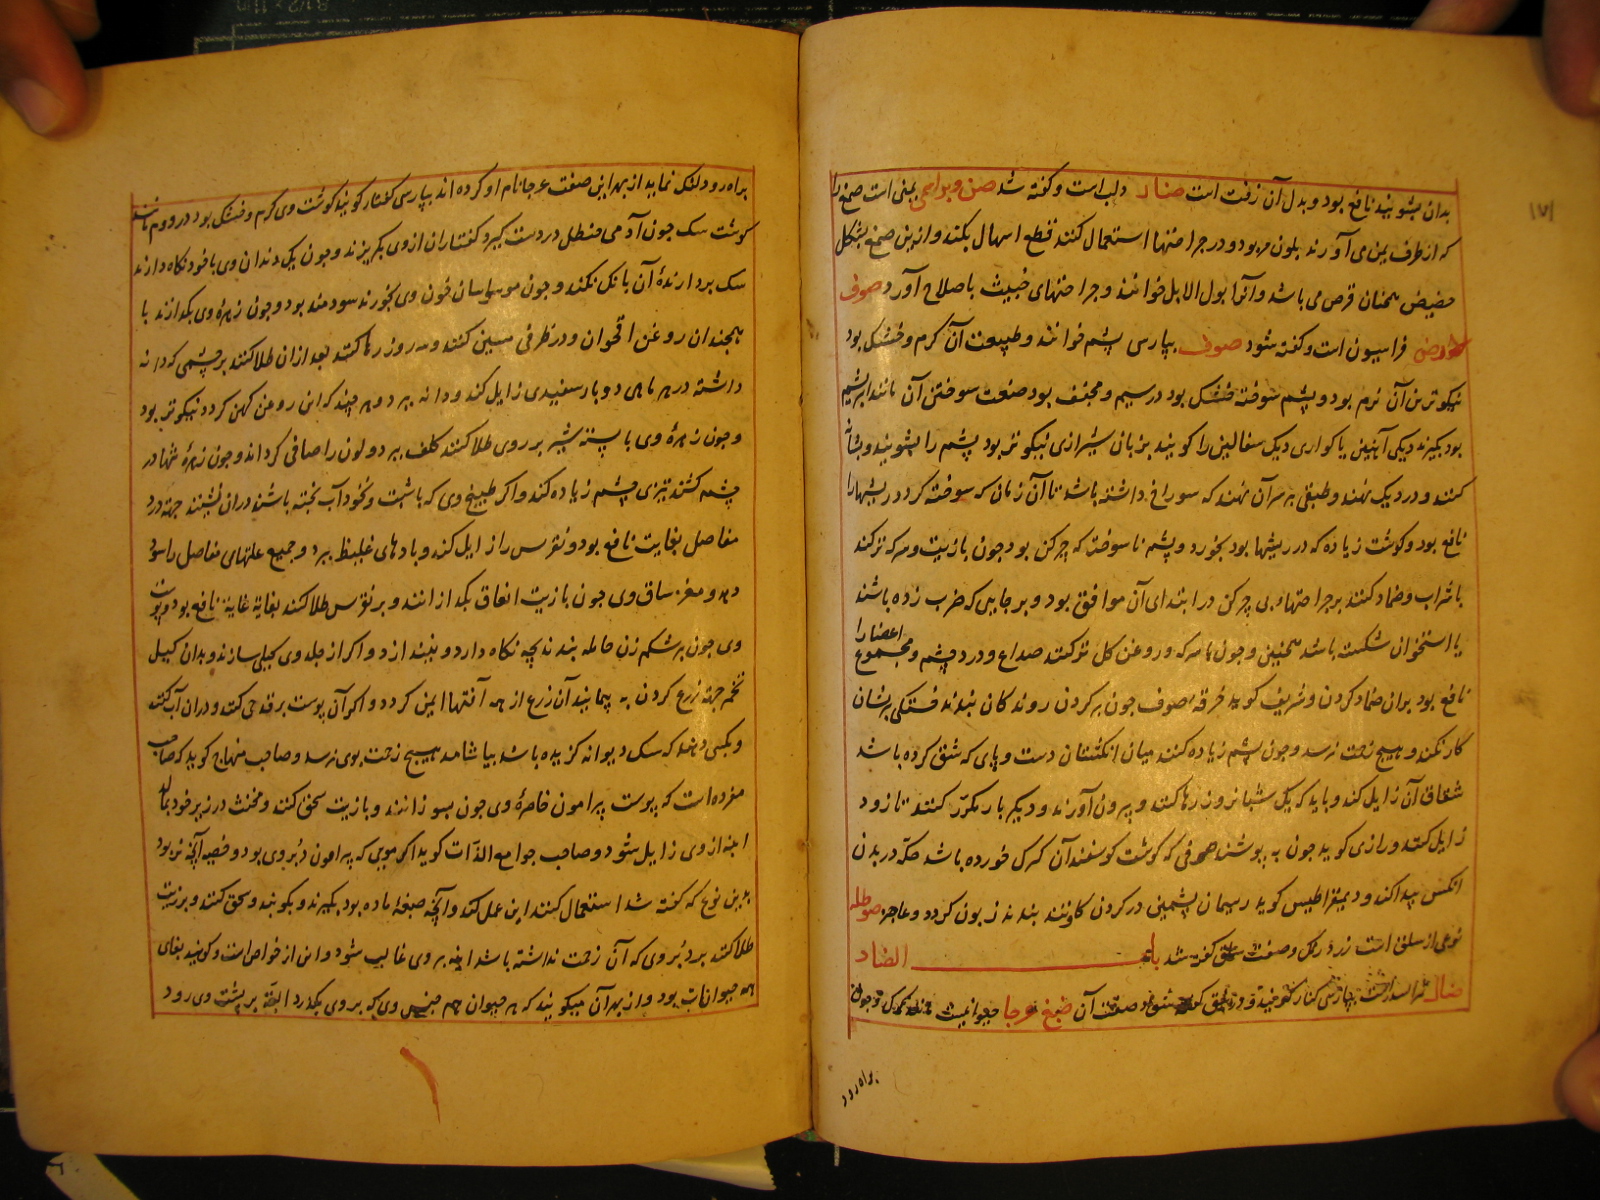 بدان بشویند نافع بود و بدل آن زفت است صنار دلب است و گفته شد صن وبرامی یمنی است صمغ را
که از طرف یمن می آورند بلون مر بود و در جراحتها استعمال کنند قطع اسهال بکند و از ین صمغ بشکل
حضیض همچنان قرص می باشد و آنرا بول الابل خوانند و جراحتهای خبیث باصلاح آورد صوف
فراسیون است و گفته شود صوف بپارسی پشم خوانند و طبیعت آن گرم و خشک بود
نیکوترین آن نرم بود و پشم سوخته خشک بود در سیم و مجفف بود صنعت سوختن آن مانند ابریشم
بود بگیرند دیکی آهنین یا کواری دیک سفالین را گویند بزبان شیرازی نیکوتر بود پشم را بشویند و بشانه
کنند و در دیک نهند و طبقی بر سر آن نهند که سوراخ داشته باشد تا آن زمان که سوخته کردد ریشها را
نافع بود و گوشت زیاده که در ریشها بود بخورد و پشم ناسوخته که چرکن بود چون بازیت و سرکه تر کند
یا شراب و ضماد کنند بر جراحتهاء بی چرکن در ابتدای آن موافق بود و بر جایی که ضرب زده باشند
یا استخوان شکسته باشد همچنین و چون با سرکه و روغن کل تر کنند صداع و درد چشم و مجموع اعضا را
نافع بود بران ضماد کردن و شریف کوید خرقه صوف چون بر کردن روندکان بندند خستکی بر شان
کار نکند و هیچ زحمت نرسد و چون پشم زیاده کنند میان انکشتان دست و پای که شق کرده باشد
شقاق آن زایل کند و باید که یک شبانروز رها کنند و بیرون آورند و دیکر بار مکرر کنند تا زود
زایل کند و رازی کوید چون بپوشند صوفی که گوشت گوسفند آن کرک خورده باشد حکه در بدن
انکس پیدا کند و دیمقراطیس کوید ریسمان پشمین در کردن کاو تند بندند زبون کردد و عاجز صوطله
نوعی از سلق است زرد رنک و صفت سلق گفته شد باب الضاد
ضال بپارسی کنار گویند و در گفته شود صفت آن ضبع عرجا حیوانیست مانند کرک و چون
براه رود
براه رود لنک نماید از بهر این صفت عرجا نام او کرده اند بپارسی کفتار گویند گوشت وی گرم و خشک بود در دوم مانند
گوشت سک چون آدمی حنظل در دست کیرد کفتاران از وی بکریزند و چون یک دندان وی با خود نکاه دارند
سک بر دارندهٔ آن بانک نکند و چون موسواسان خون وی بخورند سودمند بود و چون زهرهٔ وی بکدازند با
همچندان روغن اقحوان و در ظرفی مسین کنند و سه روز رها کنند بعد ازان طلا کنند بر چشمی که دانه
داشته در هر ماهی دو بار سفیدی زایل کند و دانه ببرد و هر چند که این روغن کهن کردد نیکوتر بود
و چون زهرهٔ وی با پسته شیر بر روی طلا کنند کلف ببرد و لون را صافی کرداند و چون زهرهٔ تنها در
چشم کشند تیزی چشم زیاده کند و اکر طبیخ وی که با شبت و نخود آب پخته باشند دران نشینند جهة درد
مفاصل بغایت نافع بود و نقرس را زایل کند و بادهای غلیظ ببرد و جمیع علتهای مفاصل را سود
دهد و مغز ساق وی چون بازیت انفاق بکدازانند و بر نقرس طلا کنند بغایة غایة نافع بود و پوست
وی چون بر شکم زن حامله بندند بچه نکاه دارد و نیندازد و اکر از جلد وی کیلی سازند و بدان کیل
تخم جهة زرع کردن به پیمایند آن زرع از همه آفتها ایمن کردد و اکر آن پوست بر قدحی کنند و دران آب کنند
و بکسی دهند که سک دیوانه کزیده باشد بیاشامد هیچ زحمت بوی نرسد و صاحب منهاج کوید که صاحب
مفرده است که پوست پیرامون خاصرهٔ وی چون بسوزانند و بازیت سحق کنند و مخنث در زیر خود بمالد
ابنه از وی زایل شود و صاحب جوامع الذات کوید اکر مویی که پیرامون دبر وی بود و خصیه آنچه نر بود
بدین نوع که گفته شد استعمال کنند این عمل کند و آنچه صبغهٔ ماده بود بکیرند و بکویند و سحق کنند و بر زیت
طلا کنند بر دبر وی که آن زحمت نداشته باشد ابنه بر وی غالب شود و این از خواص است و گویند بغای
همه حیوانات بود و از بهر آن میکویند که هر حیوان هم جنس وی که بر وی بکذرد البته بر پشت وی رود